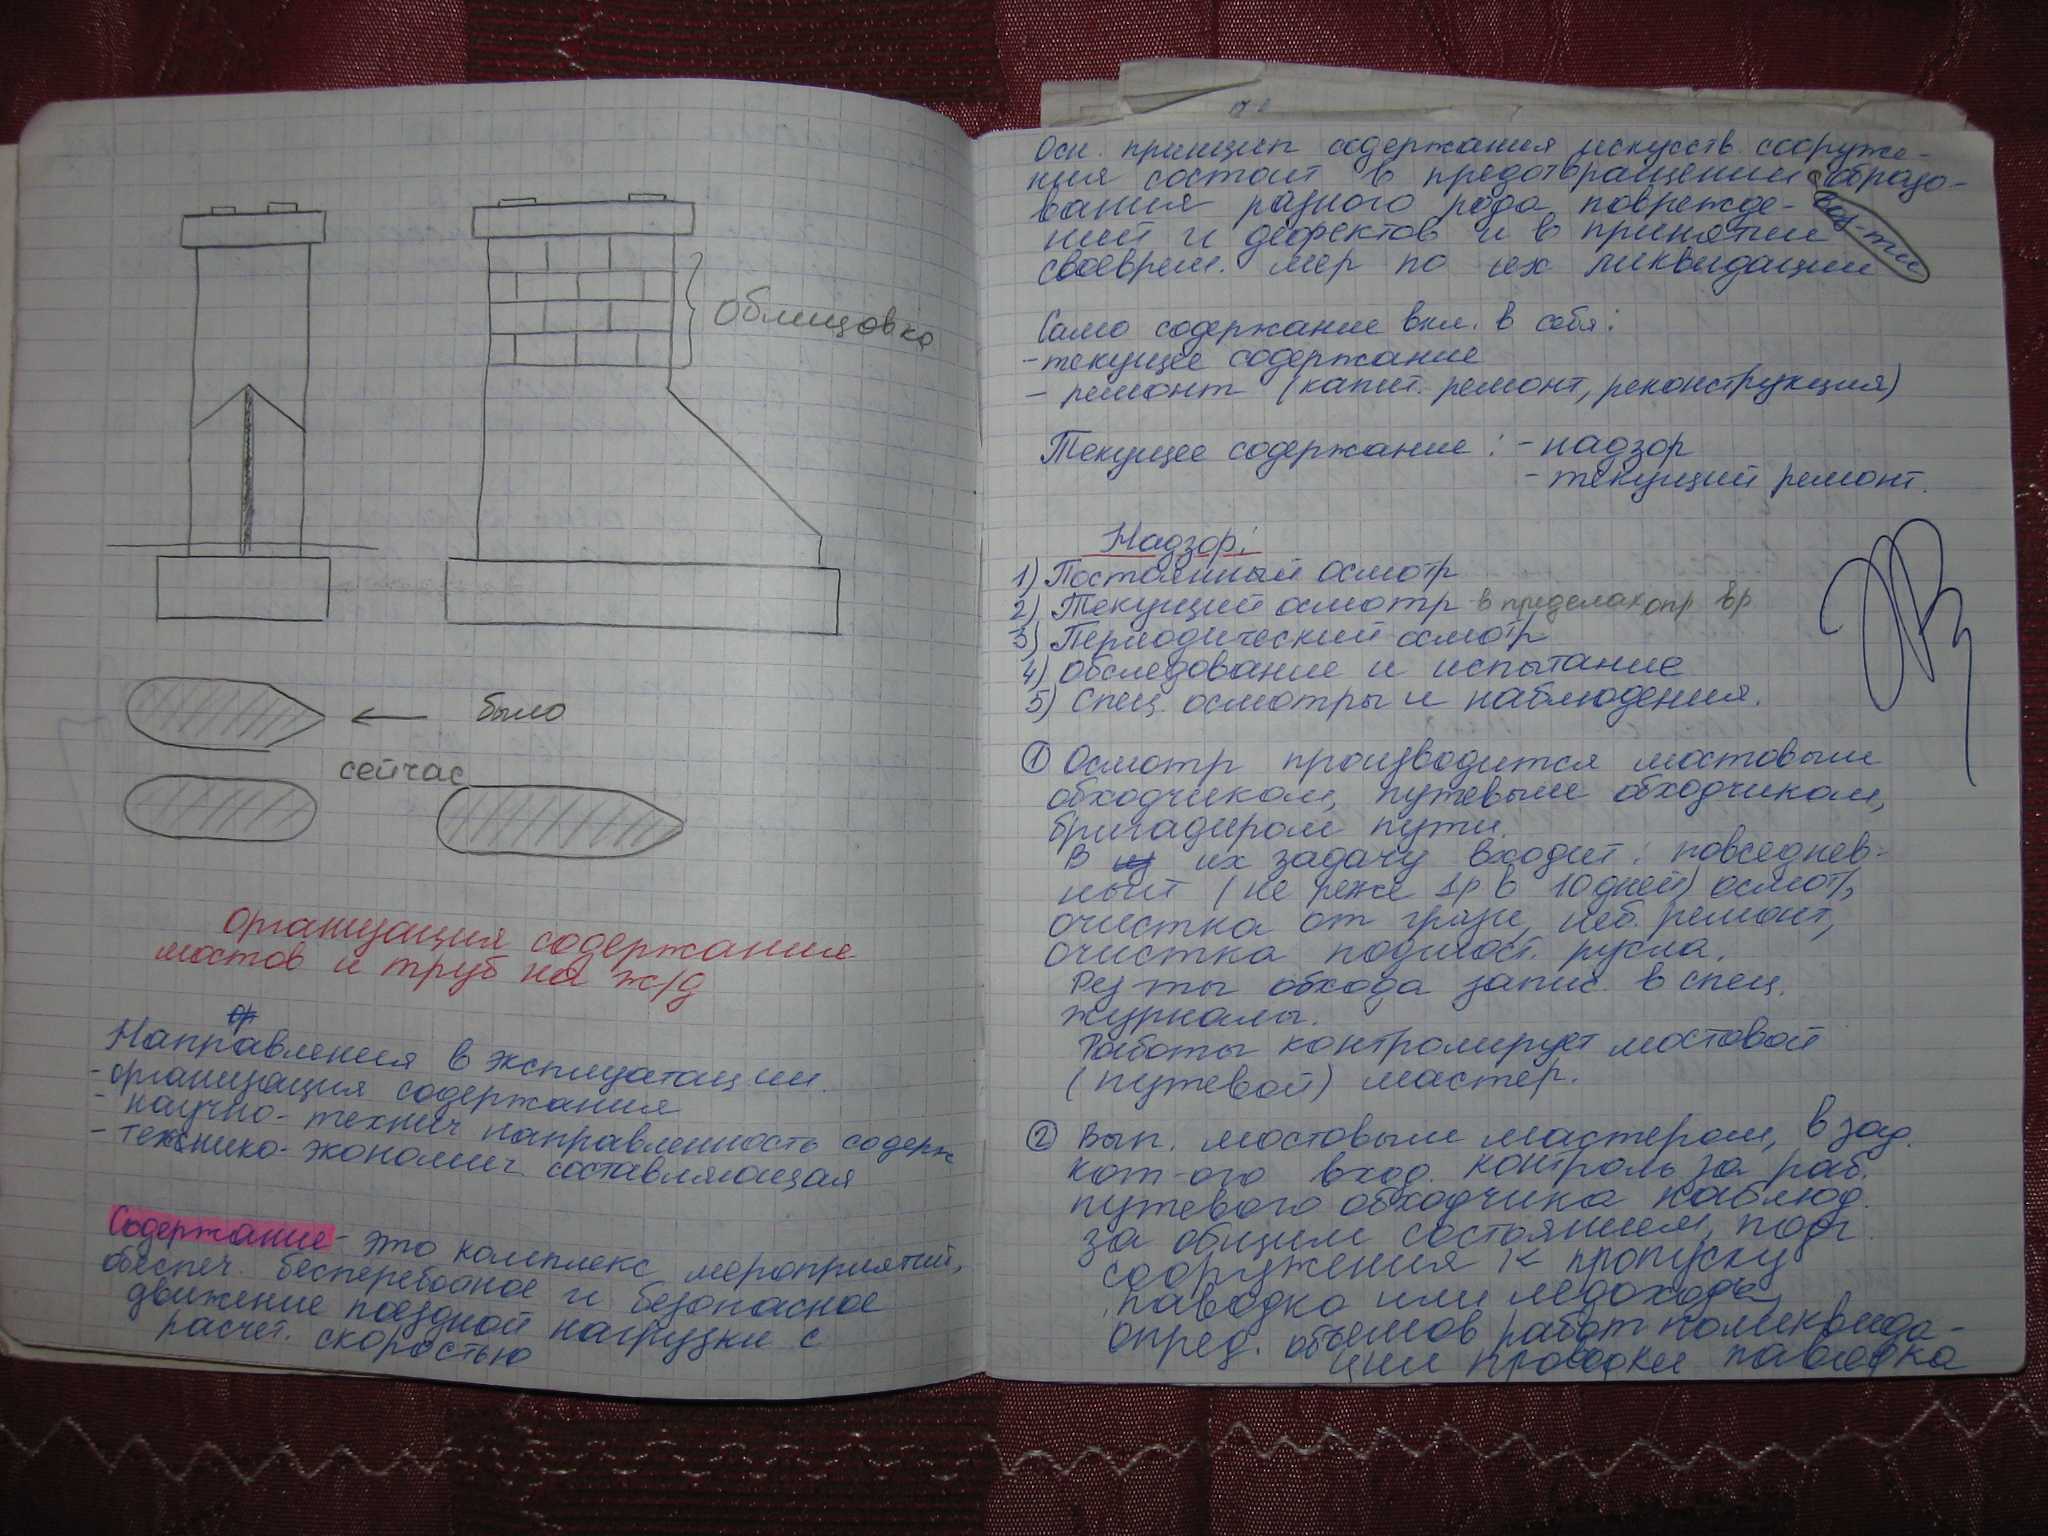 Облицовка
было
сейчас
Организация содержания
мостов и труб на ж/д
Направления в эксплуатации.
- организация содержания
- научно-технич направленность содерж
- технико-экономич составляющая
Содержание - это комплекс мероприятий,
обеспеч. бесперебойное и безопасное
движение поездной нагрузки с
расчет. скоростью
Осн. принцип содержания искусств. сооруже-
ния состоит в предотвращении образо-
вания разного рода поврежде-
ний и дефектов и в принятии
своеврем. мер по их ликвидации
Само содержание вкл. в себя:
- текущее содержание
- ремонт (капит. ремонт, реконструкция)
Текущее содержание: - надзор
- текущий ремонт.
Надзор:
1) Постоянный осмотр
2) Текущий осмотр - в пределах опр вр
3) Периодический осмотр
4) Обследование и испытание
5) Спец. осмотры и наблюдения.
① Осмотр производится мостовым
обходчиком, путевым обходчиком,
бригадиром пути.
В их задачу входит: повседнев-
ный (не реже 1р в 10 дней) осмотр,
очистка от грязи, неб. ремонт,
очистка подмост. русла.
Рез-ты обхода запис. в спец.
журналы.
Работы контролирует мостовой
(путевой) мастер.
② Вып. мостовым мастером, в зад.
кот-ого вход. контроль за раб.
путевого обходчика наблюд.
за общим состоянием, подг.
сооружения к пропуску
паводка или ледохода,
опред. объемов работ по ликвида-
ции проводки паводка